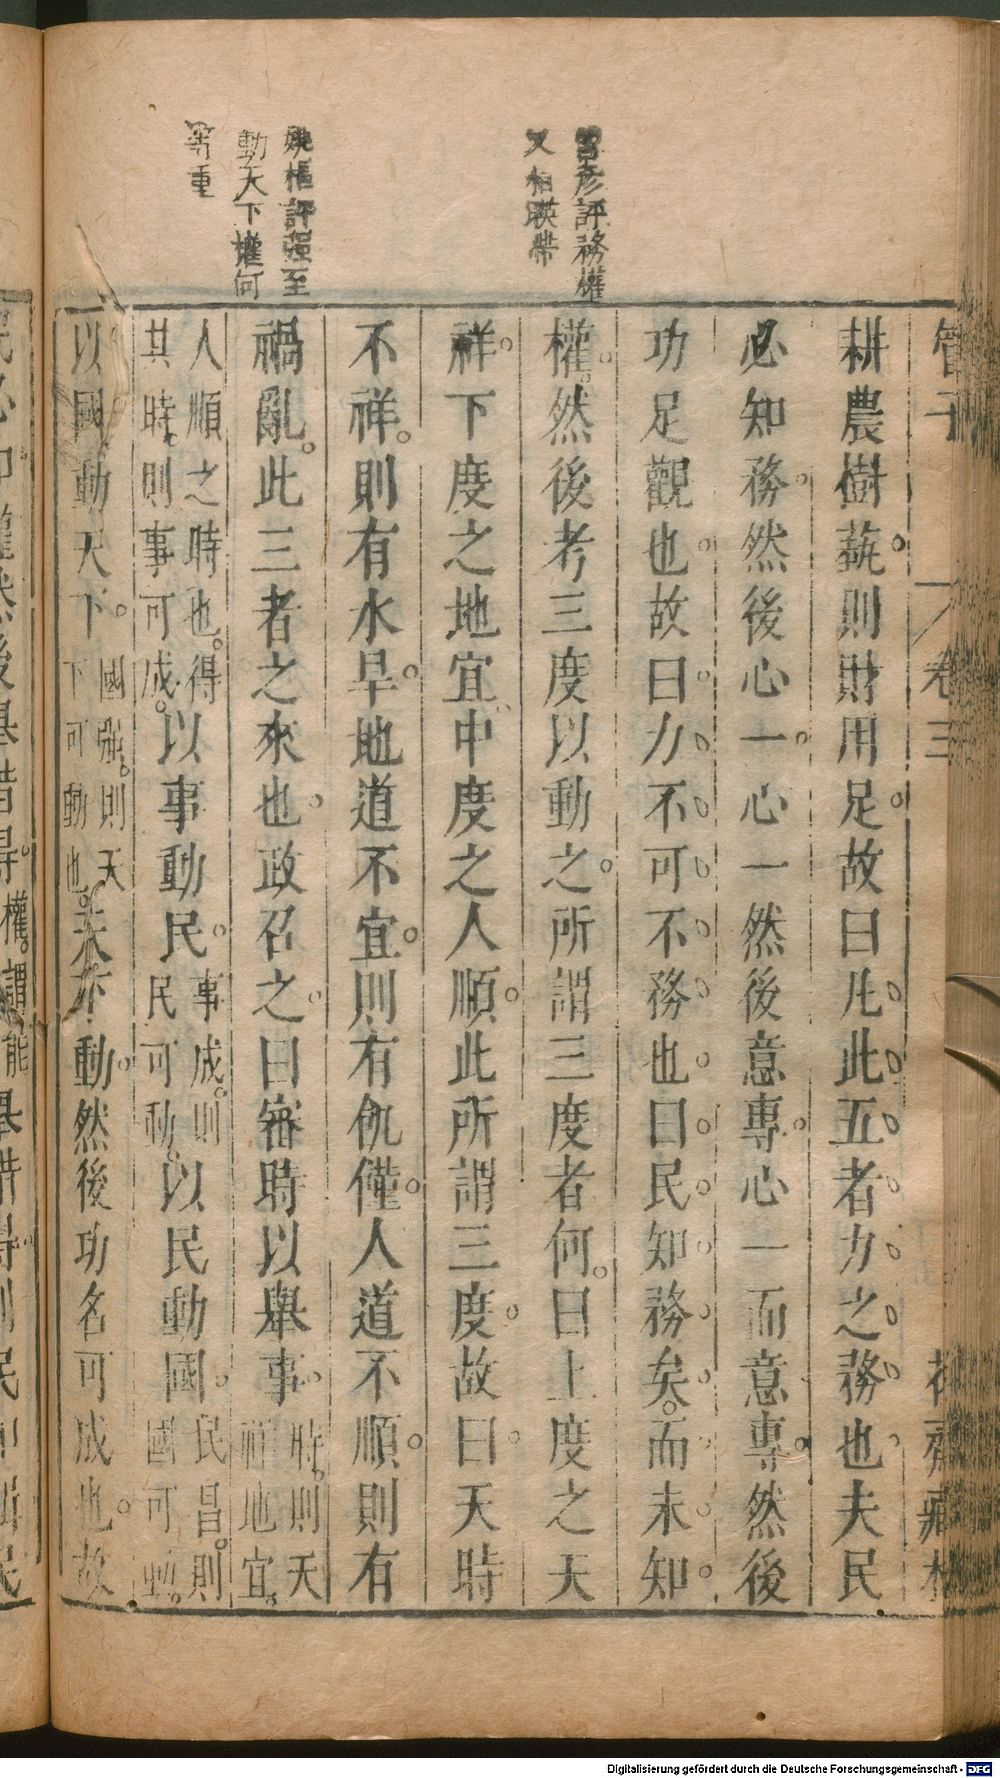 管子
卷三
花齋藏板
耕農樹蓺則財用足故曰凡此五者力之務也夫民
必知務然後心一心一然後意專心一而意專然後
功足觀也故曰力不可不務也曰民知務矣而未知
權然後考三度以動之所謂三度者何曰上度之天
祥下度之地宜中度之人順此所謂三度故曰天時
不祥則有水旱地道不宜則有飢僅人道不順則有
禍亂此三者之來也政召之曰審時以舉事時則天
祥地宜
人順之時也得
其時則事可成以事動民事成則
民可動以民動國民昌則
國可動
以國動天下國強則天
下可動也天下動然後功名可成也故
評務權
又相映帶
姚樞評強至
動天下權何
等重
民必知權然後舉措得權謂能舉措得則民和輯民
Digitalisierung gefördert durch die Deutsche Forschungsgemeinschaft - DFG